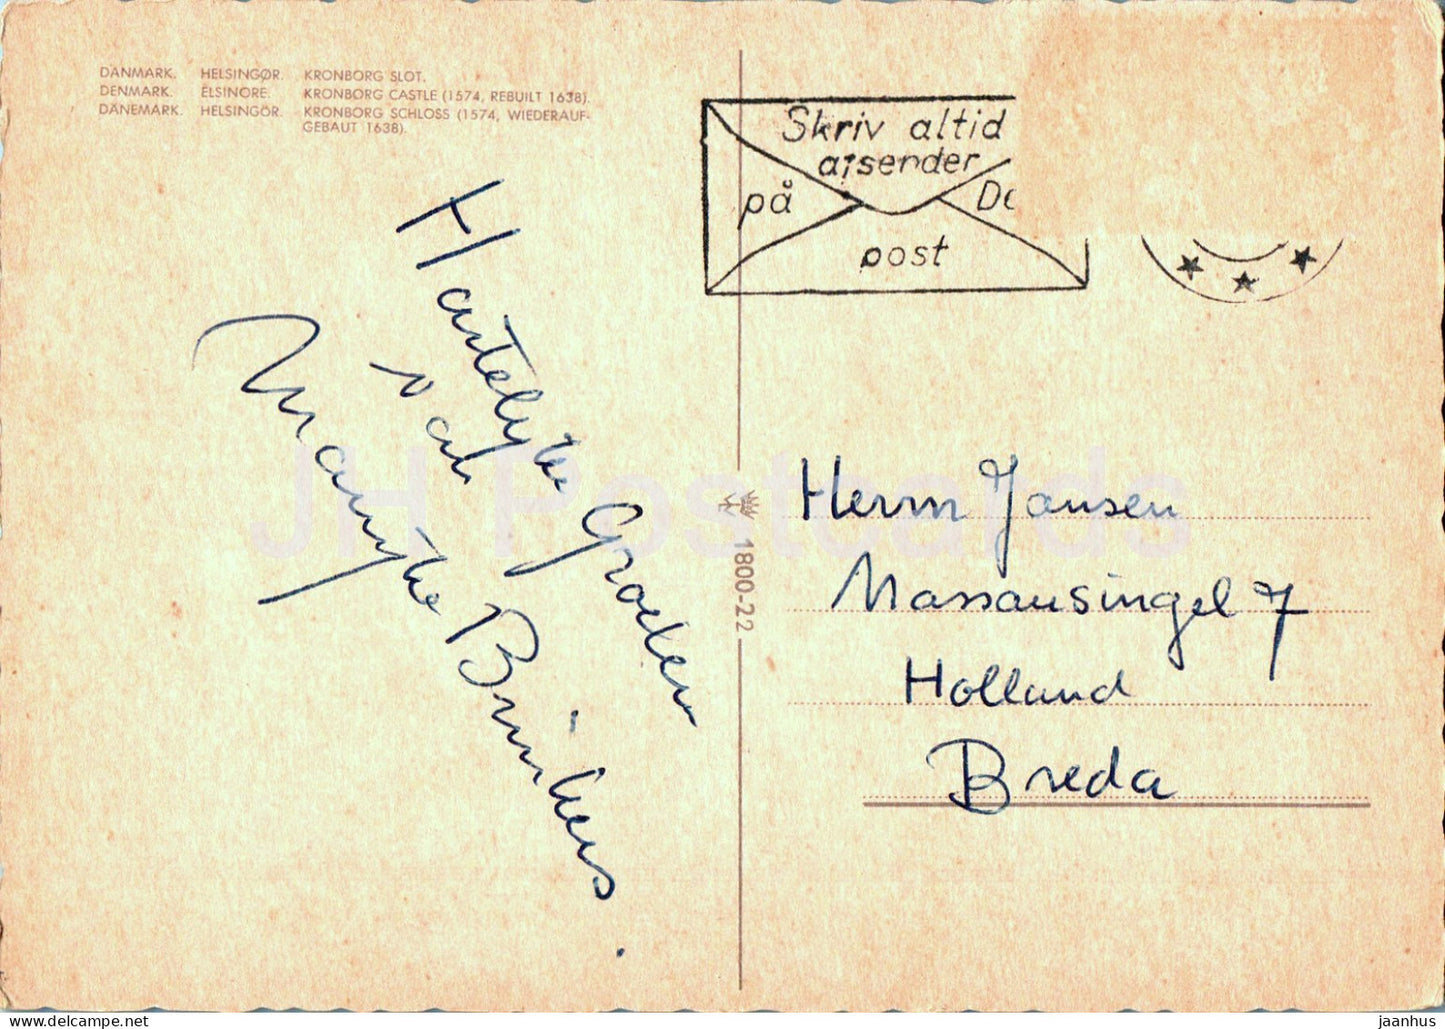 DANMARK. HELSINGØR. KRONBORG SLOT.
DENMARK. ELSINORE. KRONBORG CASTLE (1574, REBUILT 1638).
DÄNEMARK. HELSINGÖR. KRONBORG SCHLOSS (1574, WIEDERAUF-
GEBAUT 1638).
Skriv altid
afsender
på
post
Hartelyke Groeten
van
Marijke Brinkers.
1800-22
Herrn Jansen
Nassausingel 7
Holland
Breda
JH Postcards
www.delcampe.net
jaanhus